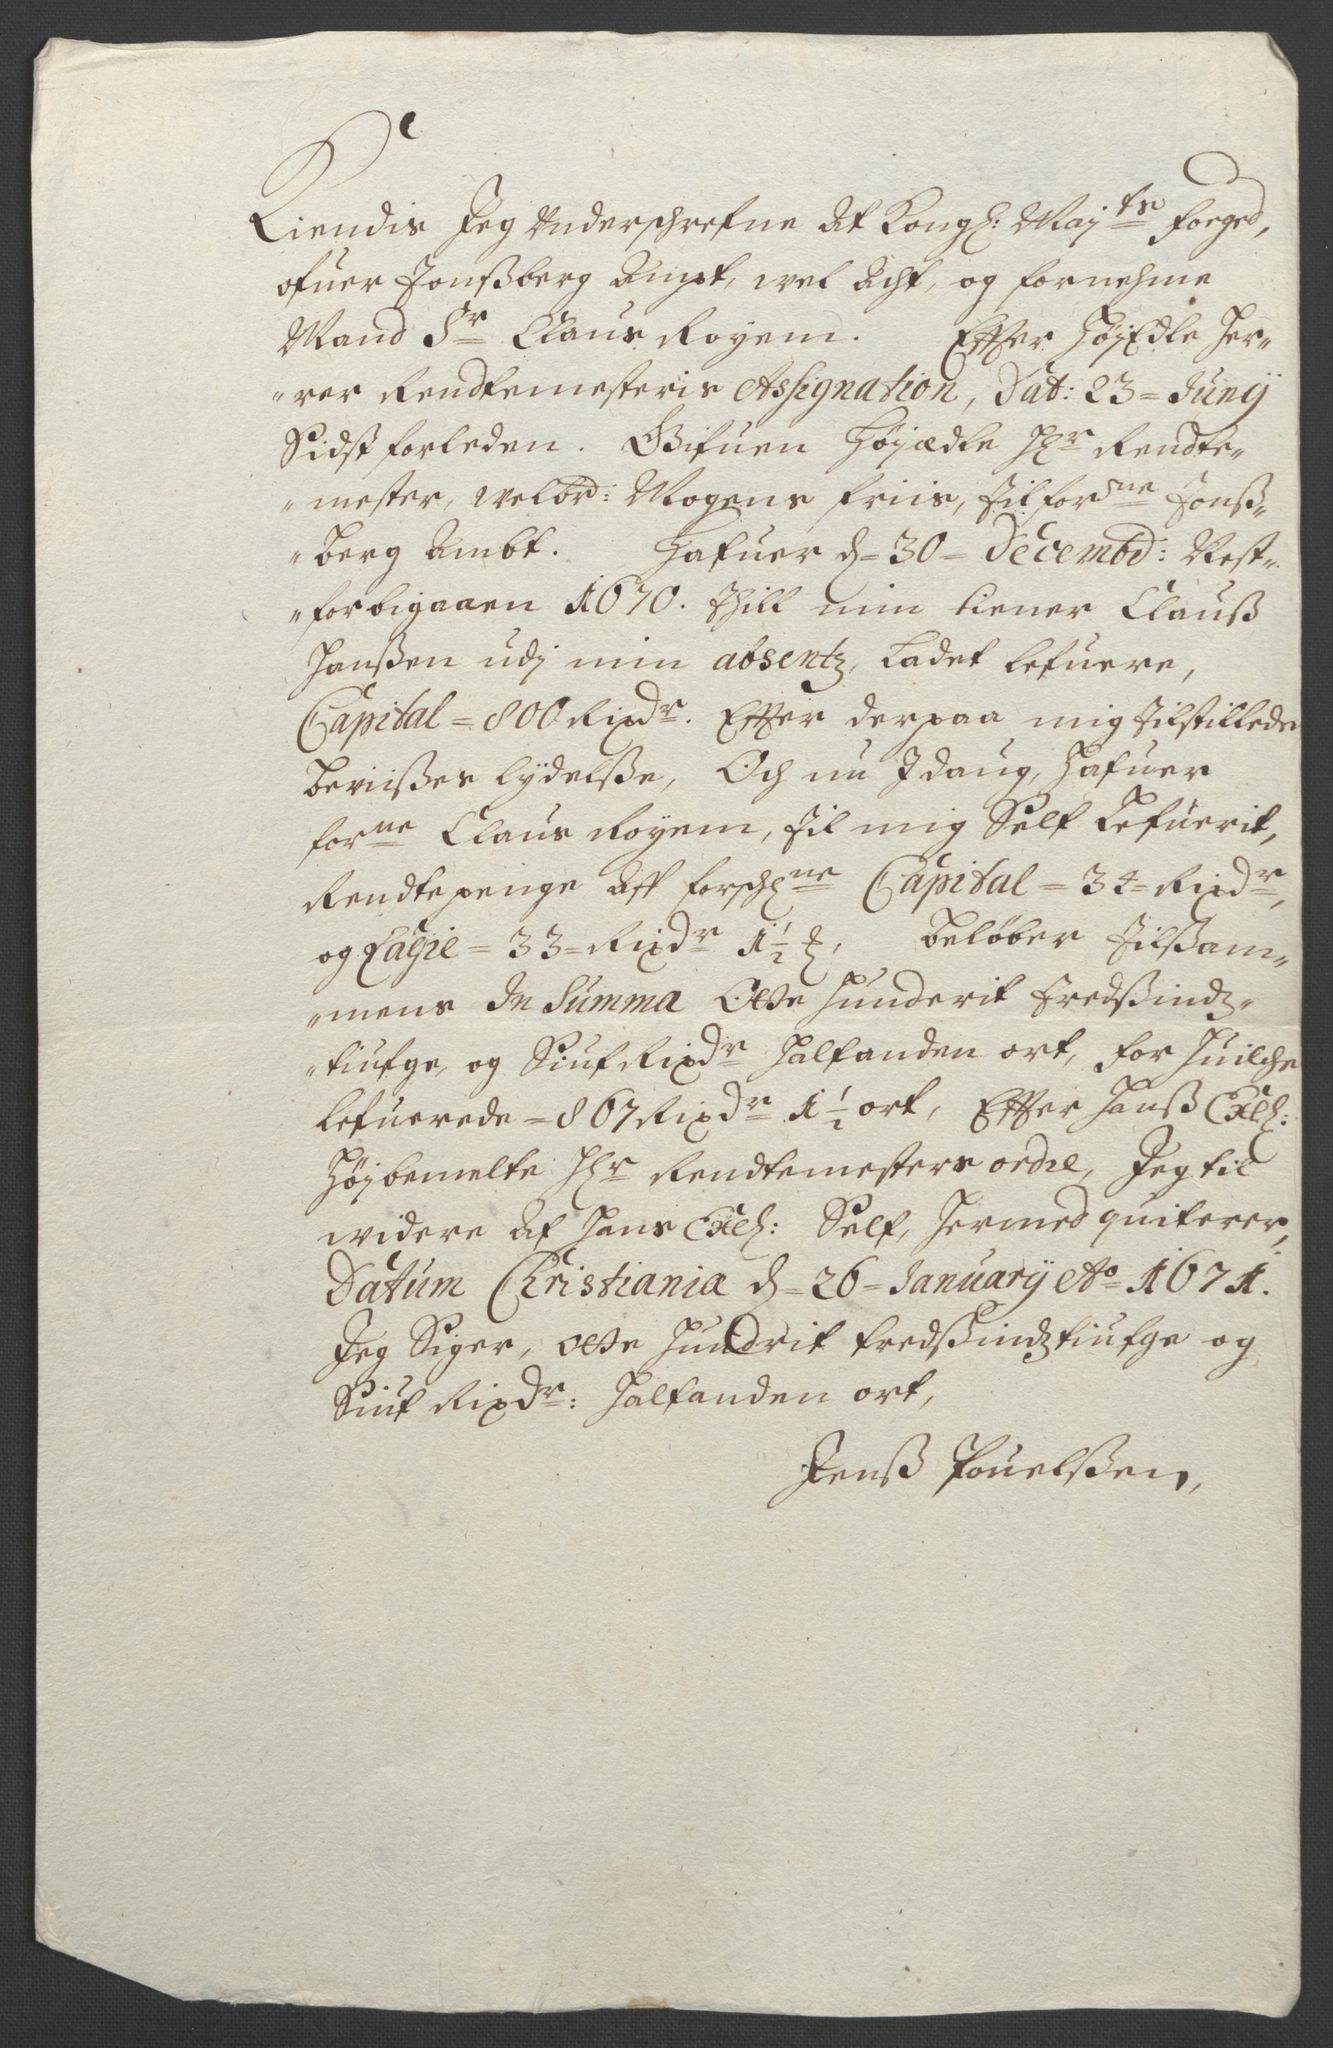 Kiendis Jeg Underschrefne At Kongl: Maj:ts foeged,
ofuer Jonßberg Ampt, wel Acht, og fornehme
Mand Sr Claus Royem. Effter Høj Edle Her-
"rer Rendtemesteris Assignation, Dat: 23 = Junÿ
Sidst forleden. Gifuen Høj ædle Hr Rendte-
"mester, welbrd: Mogens Friis, til forne Jonß-
"berg Ambt. Hafuer d = 30 = Decembr: Nest-
"forbigaaen 1670. thill min tiener Clauß
Hanßen udj min absentz, Ladet lefuere,
Capital = 800 Rixdr. Effter derpaa mig tilstillede
beviißes lÿdelße, Och nu J daug, hafuer
forne Claus Royem, til mig Self Lefuerit,
Rendtepenge Aff forschne Capital = 34 = Rixdr,
og Lagie = 33 = Rixdr 1½ ort, beløber tilßam-
"mens In Summa Otte hunderit tredßindz-
"tiufge, og Siuf Rixdr halfanden ort, for huilche
lefuerede = 867 Rixdr 1½ ort, Effter Hanß Excl:
Højbemelte Hr Rendtemesters ordre, Jeg til
widere Af Hans Excl: Self, hermed quiterer,
Datum Christiania d = 26 = Januarÿ Ao 1671.
Jeg Siger, otte hundrit tredßindztiufge og
Siuf Rixdr: halfanden ort,
Jenß Pouelßen,